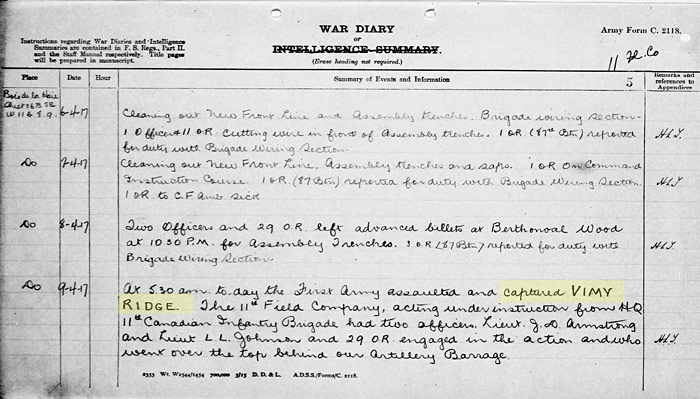 WAR DIARY
OR
INTELLIGENCE SUMMARY.
(Erase heading not required.)
Army Form C. 2118.
Instructions regarding War Diaries and Intelligence
Summaries are contained in F. S. Regs., Part II.
and the Staff Manual respectively. Title pages
will be prepared in manuscript.
11 Co
Place Date Hour Summary of Events and Information 5 Remarks and
references to
Appendices
Bois de la Haie
Sheet 36B SE
W 11 6-4-17
Cleaning out New Front Line and Assembly trenches. Brigade wiring Section-
1 Officer & 11 O.R. Cutting wire in front of Assembly trenches. 1 O.R. (87th Btn) reported
for duty with Brigade Wiring Section. H.L.J.
Do 7-4-17 Cleaning out New Front Line, Assembly trenches and saps. 1 O.R. On Command
Instruction Course. 1 O.R. (87 Btn) reported for duty with Brigade Wiring Section. H.L.J.
1 O.R. to C.F. Amb. Sick
Do 8-4-17 Two Officers and 29 O.R. left advanced billets at Berthonval Wood
at 10.30 P.M. for Assembly Trenches. 3 O.R. (87 Btn) reported for duty with
Brigade Wiring Section. H.L.J.
Do 9-4-17 At 5.30 am to-day the First Army assaulted and captured VIMY
RIDGE. The 11th Field Company, acting under instruction from H.Q
11th Canadian Infantry Brigade had two officers, Lieut. J.D. Armstrong
and Lieut L.L. Johnson and 29 O.R. engaged in the action and who H.L.J.
went over the top behind our Artillery Barrage.
2353 Wt. W2544/1454 700,000 5/15 D. D. & L. A.D.S.S./Forms/C. 2118.